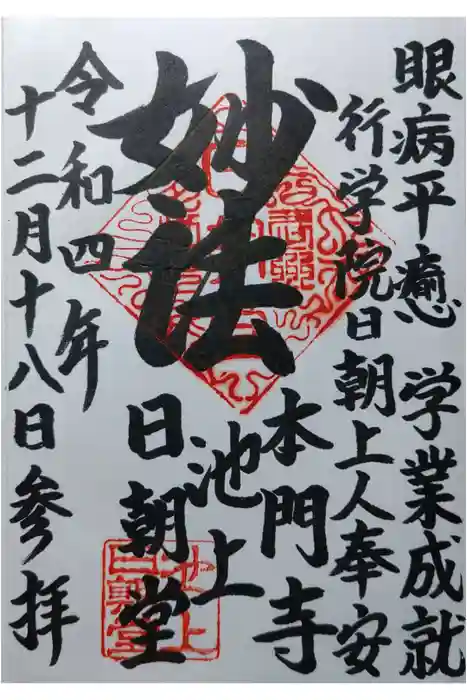 眼病平癒 学業成就
行学院日朝上人奉安
妙法
本門寺
池上
日朝堂
令和四年
十二月十八日参拝